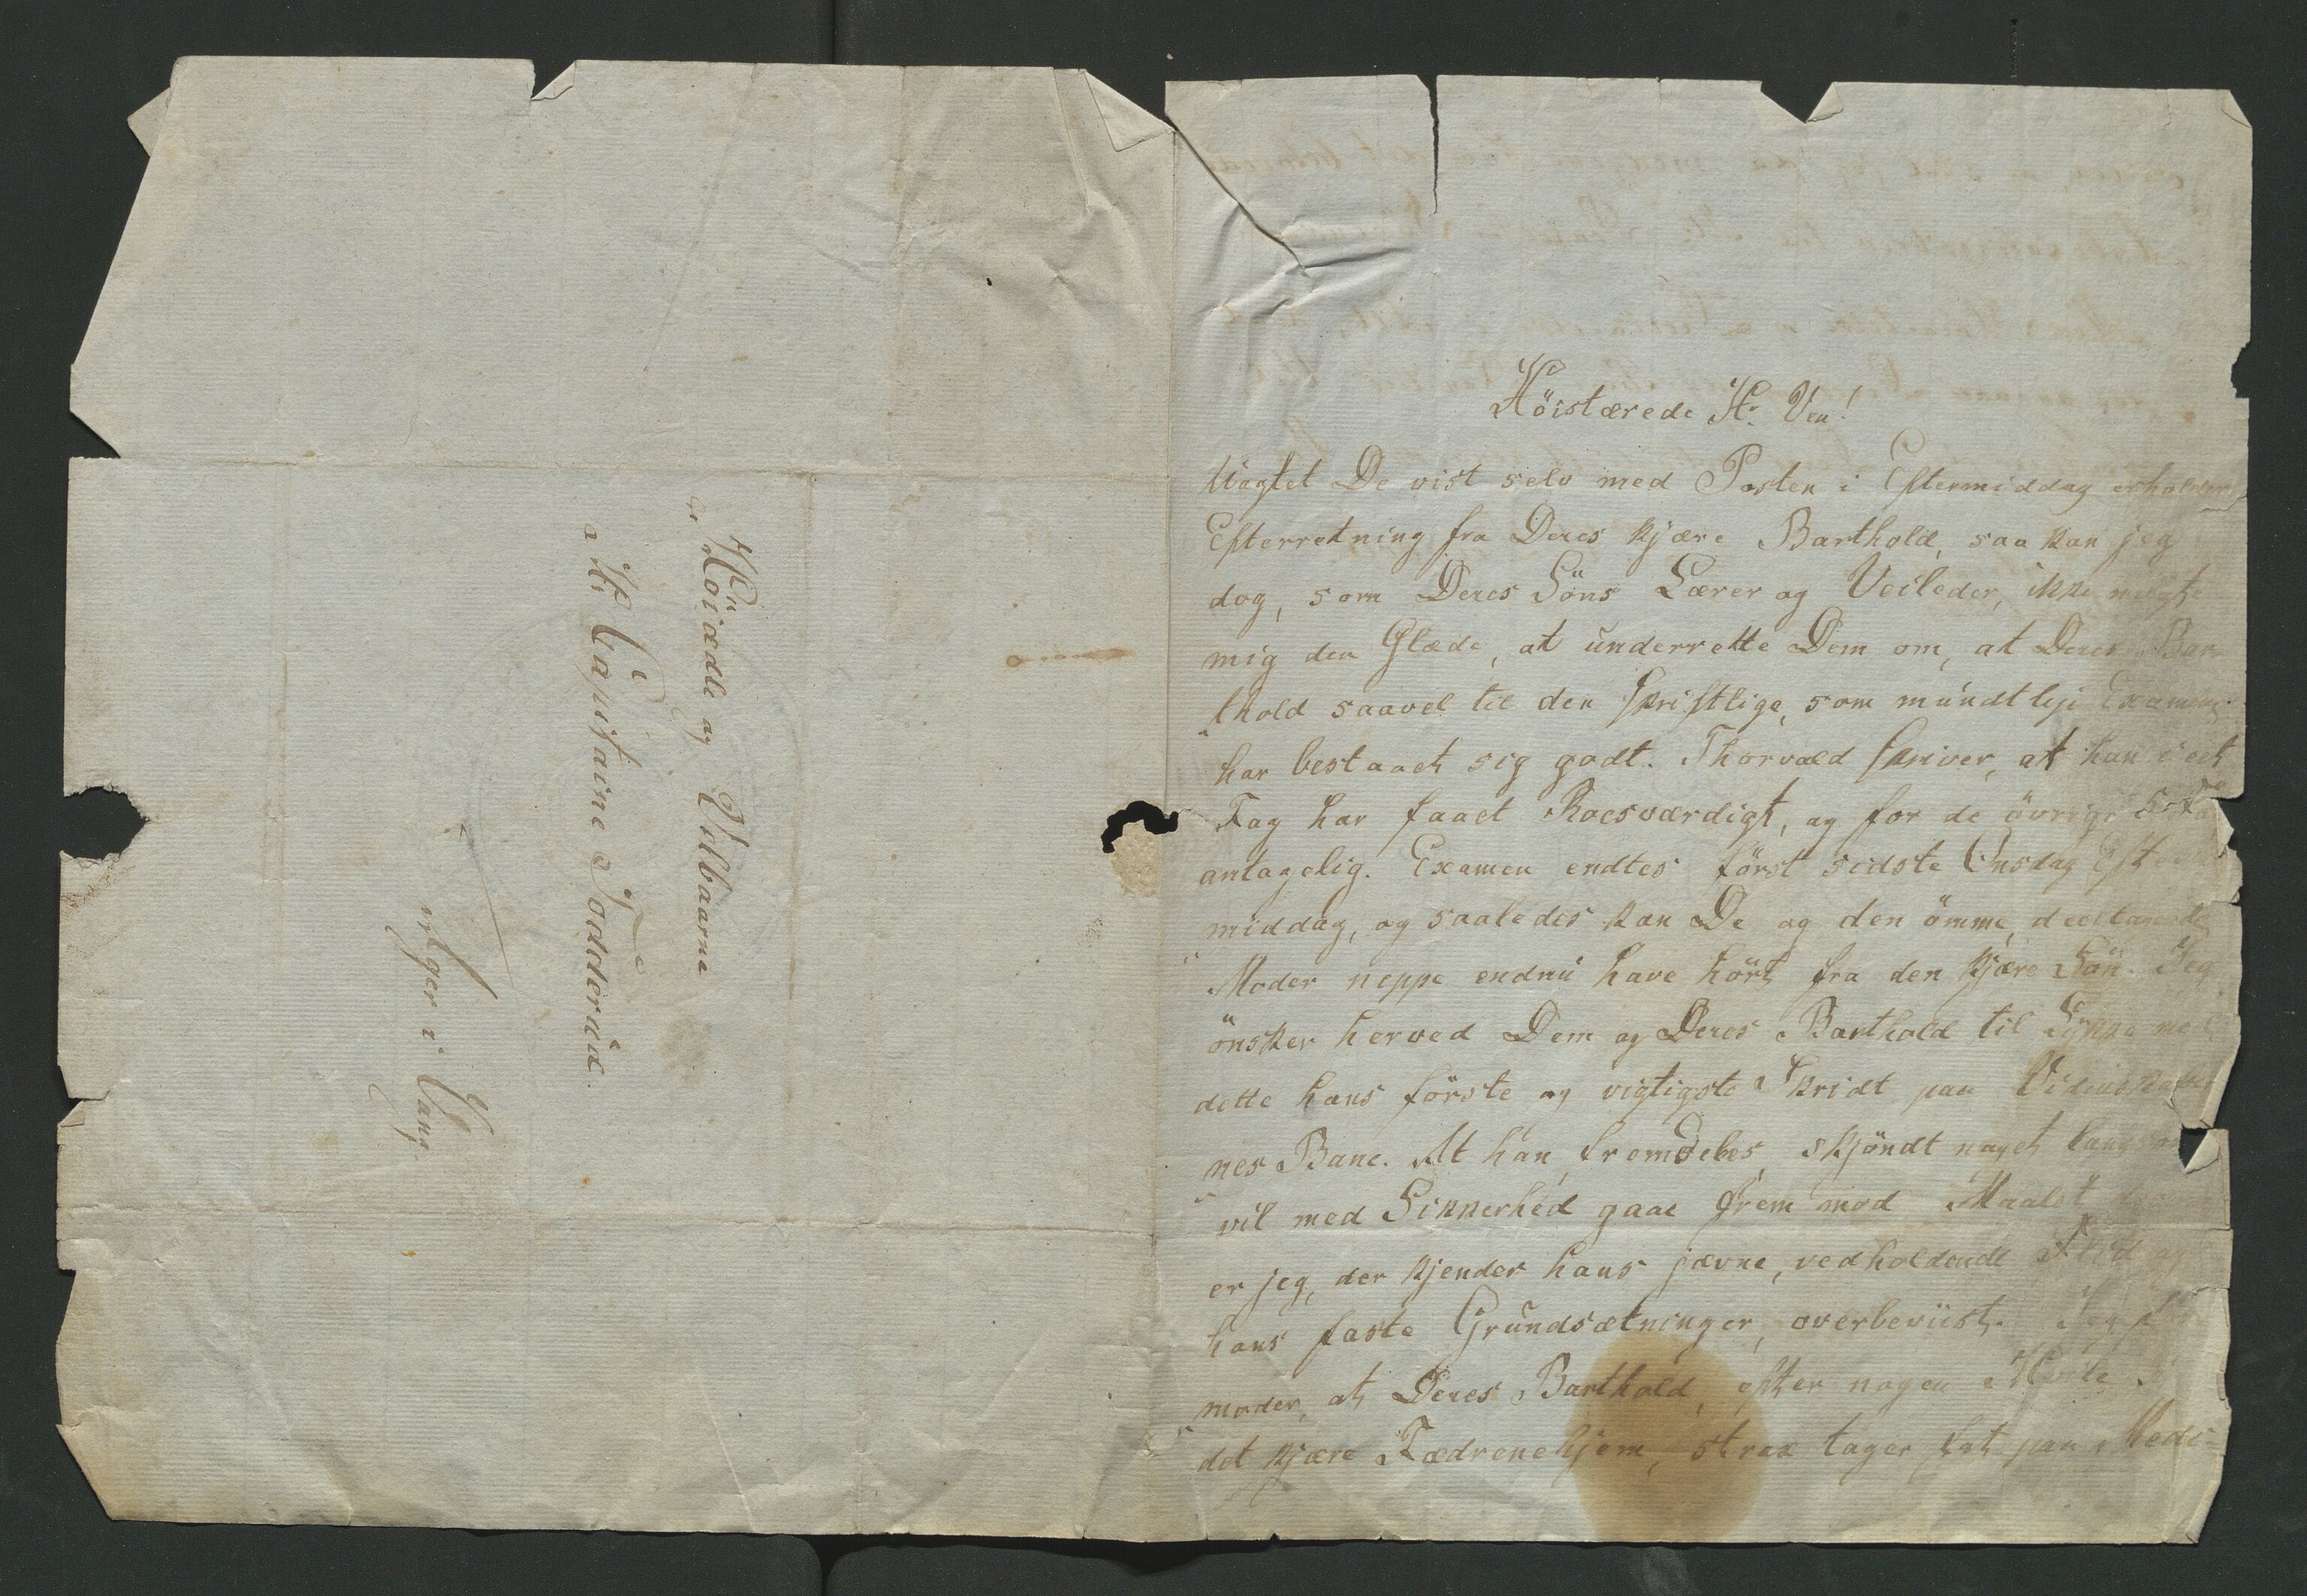 Höiædle og Velbaarne
Hr Capitaine Todderud
Ager i Vang.
Höistærede Hr. Ven!
Uagtet De vist selv med Posten i Eftermiddag erholder
Efterretning fra Deres kjære Barthold, saa kan jeg
dog, som Deres Söns Lærer og Veileder, ikke nægte
mig den Glæde, at underrette Dem om, at Deres Bar-
thold saavel til den skriftlige, som mundtlige Examen
har bestaaet sig godt. Thorvald skriver, at han i eet
Fag har faaet Roesværdigt, og for de övrige
antagelig. Examen endtes först sidste Onsdag Efter
middag, og saaledes kan De og den ömme, deeltagende
Moder neppe endnu have hört fra den kjære Sön. Jeg
önsker herved Dem og Deres Barthold til Lykke med
dette hans förste og vigtigste Skridt paa Videnskaber
nes Bane. At han fremdeles, skjöndt noget
vil med Sikkerhed gaae frem mod Maalet
er jeg, der kjender hans jævne, vedholdende Flid og
hans faste Grundsætninger, overbeviist. Jeg
moder, at Deres Barthold, efter nogen Hvile i
det kjære Fædrenehjem, strax tager fat paa Medi-